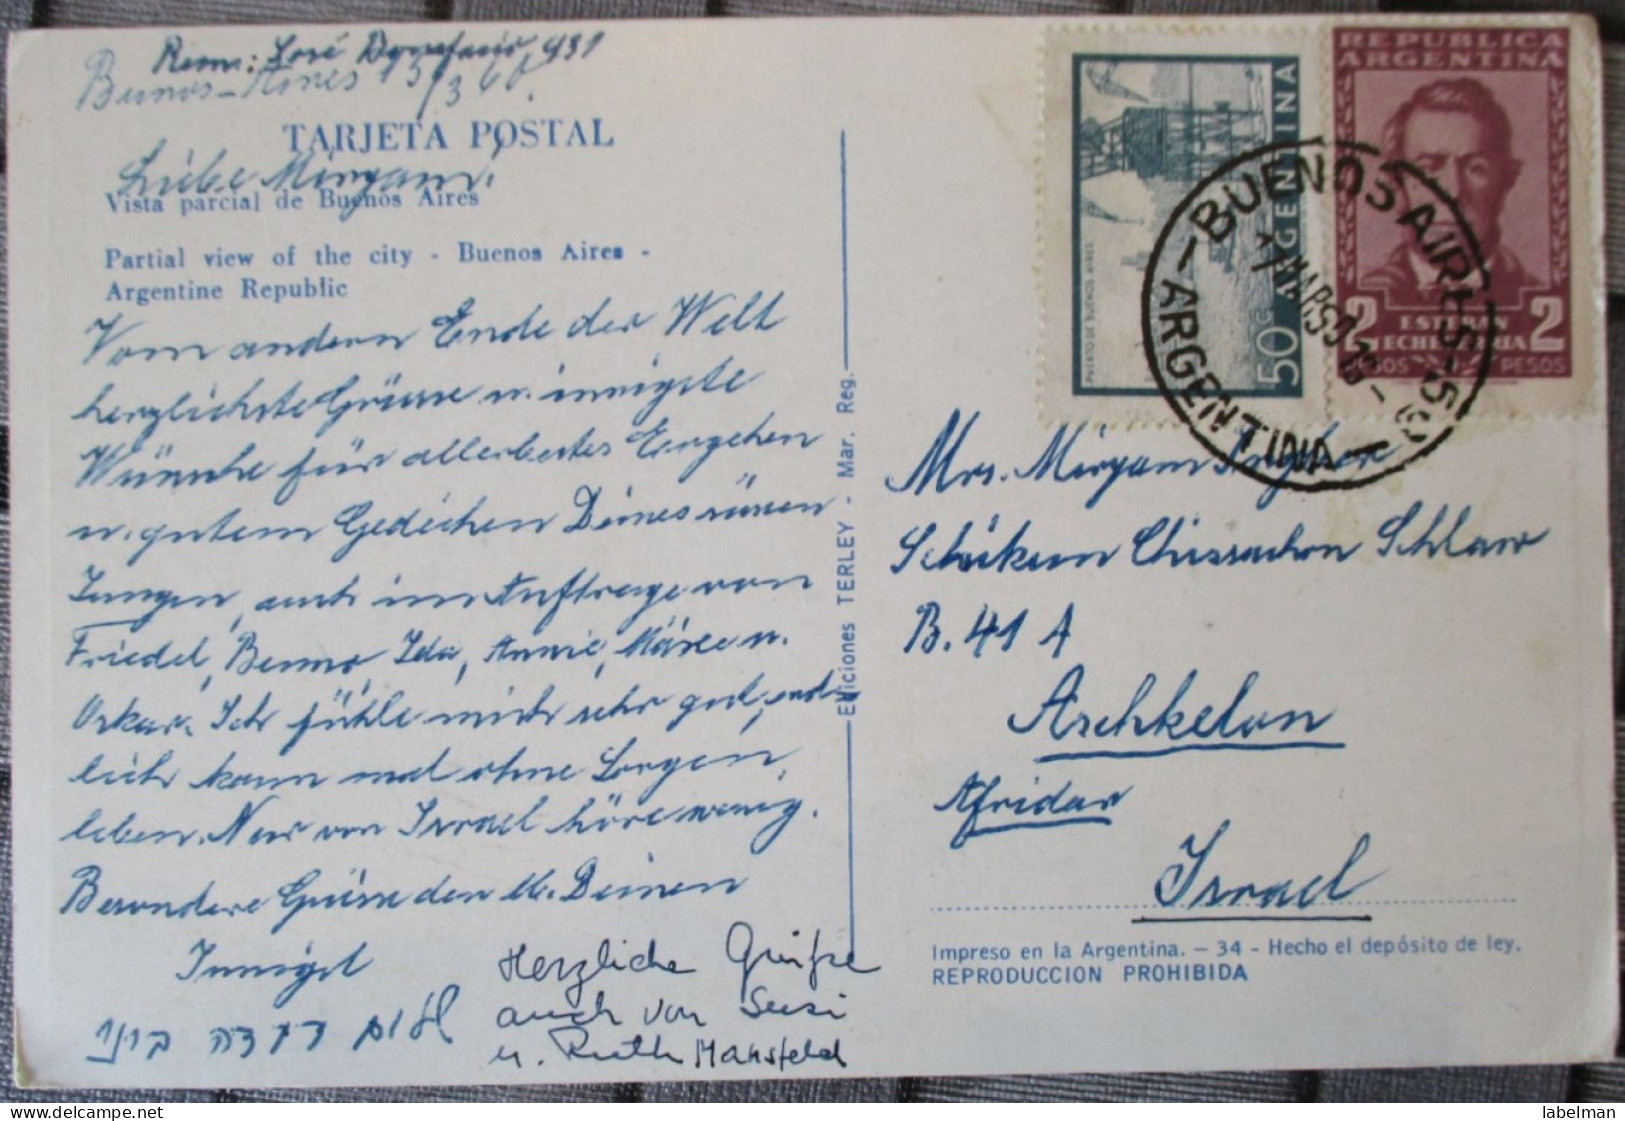 Rem: José Bonifacio, 931
Buenos-Aires 13/3 60.
TARJETA POSTAL
Liebe Miryam!
Vista parcial de Buenos Aires
Partial view of the city - Buenos Aires -
Argentine Republic
Vom andern Ende der Welt
herzlichste Grüsse u. innigste
Wünsche für allerbestes Ergehen
u. gutem Gedeihen Deines süssen
Jungen, auch im Auftrage von
Friedel, Benno, Ida, Annie, u.
Oskar. Ich fühle mich sehr gut, end-
lich kann mal ohne Sorgen
leben. Nur von Israel höre wenig.
Besondere Grüsse den lb. Deinen
Innigst
שלום
Herzliche Grüße
auch von Susi
u. Ruth Mansfeld
Ediciones TERLEY - Mar. Reg.
REPUBLICA
ARGENTINA
2 ESTEBAN ECHEVERRIA 2
PESOS PESOS
ARGENTINA
50 C
PUERTO DE BUENOS AIRES
BUENOS AIRES
ARGENTINA
Mrs. Miryam
Schikun Chissachon Schlaw
B. 41 A
Aschkelon
Afridar
Israel
Impreso en la Argentina. — 34 - Hecho el depósito de ley.
REPRODUCCION PROHIBIDA
labelman
delcampe.net